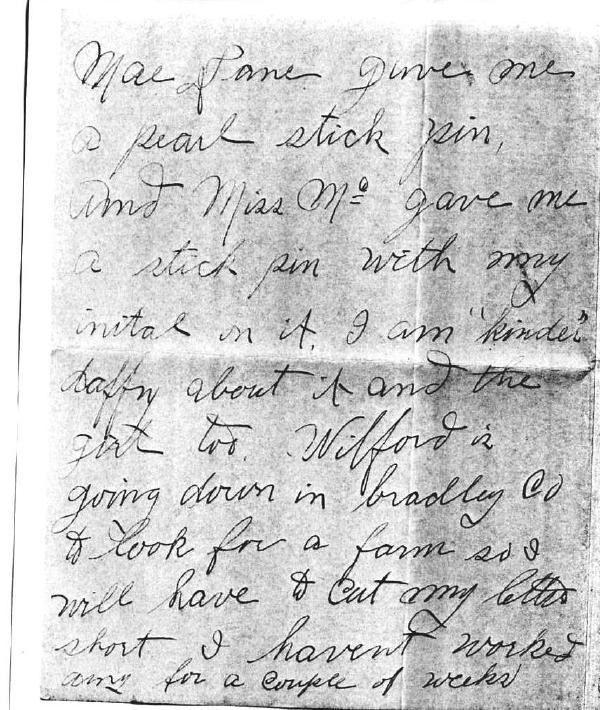 Mae Lane gave me
a pearl stick pin,
and Miss Mc gave me
a stick pin with my
inital on it. I am "kinder"
daffy about it and the
girl too. Wilford is
going down in bradley Co
to look for a farm so I
will have to cut my letter
short I havent worked
any for a couple of weeks